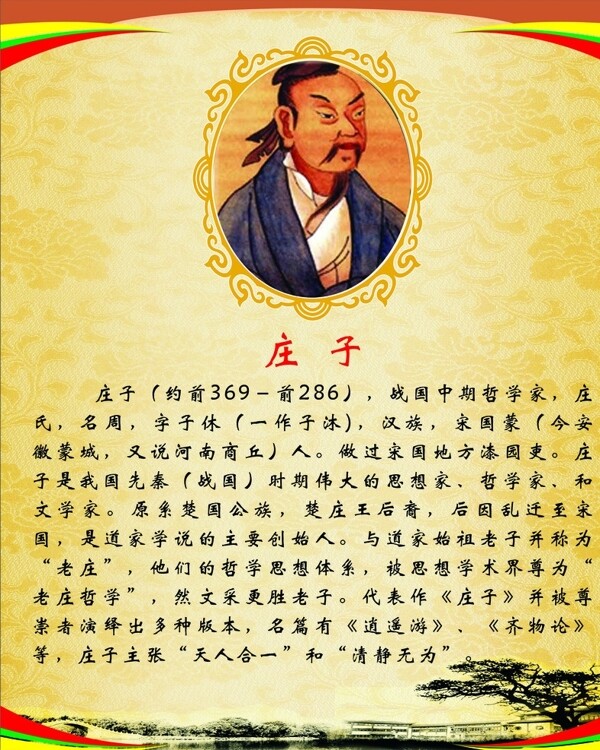 庄 子
庄子（约前369－前286），战国中期哲学家，庄
氏，名周，字子休（一作子沐)，汉族，宋国蒙（今安
徽蒙城，又说河南商丘）人。做过宋国地方漆园吏。庄
子是我国先秦（战国）时期伟大的思想家、哲学家、和
文学家。原系楚国公族，楚庄王后裔，后因乱迁至宋
国，是道家学说的主要创始人。与道家始祖老子并称为
“老庄”，他们的哲学思想体系，被思想学术界尊为“
老庄哲学”，然文采更胜老子。代表作《庄子》并被尊
崇者演绎出多种版本，名篇有《逍遥游》、《齐物论》
等，庄子主张“天人合一”和“清静无为”。